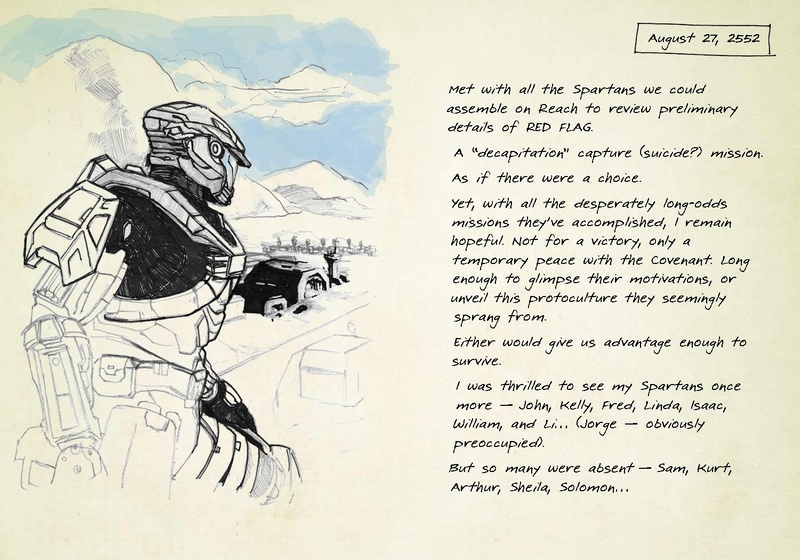 August 27, 2552
Met with all the Spartans we could
assemble on Reach to review preliminary
details of RED FLAG.
A "decapitation" capture (suicide?) mission.
As if there were a choice.
Yet, with all the desperately long-odds
missions they've accomplished, I remain
hopeful. Not for a victory, only a
temporary peace with the Covenant. Long
enough to glimpse their motivations, or
unveil this protoculture they seemingly
sprang from.
Either would give us advantage enough to
survive.
I was thrilled to see my Spartans once
more — John, Kelly, Fred, Linda, Isaac,
William, and Li... (Jorge — obviously
preoccupied).
But so many were absent — Sam, Kurt,
Arthur, Sheila, Solomon...